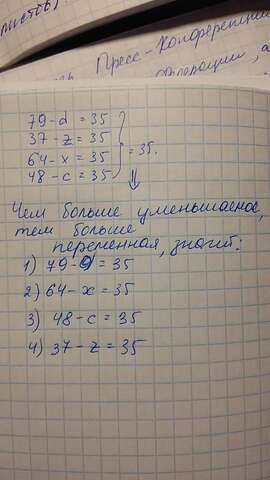 листов)
Пресс-Конференции
79-d = 35
37-z = 35
64-x = 35
48-c = 35
= 35.
Чем больше уменьшаемое,
тем больше
переменная, значит:
1) 79-d = 35
2) 64-x = 35
3) 48-c = 35
4) 37-z = 35